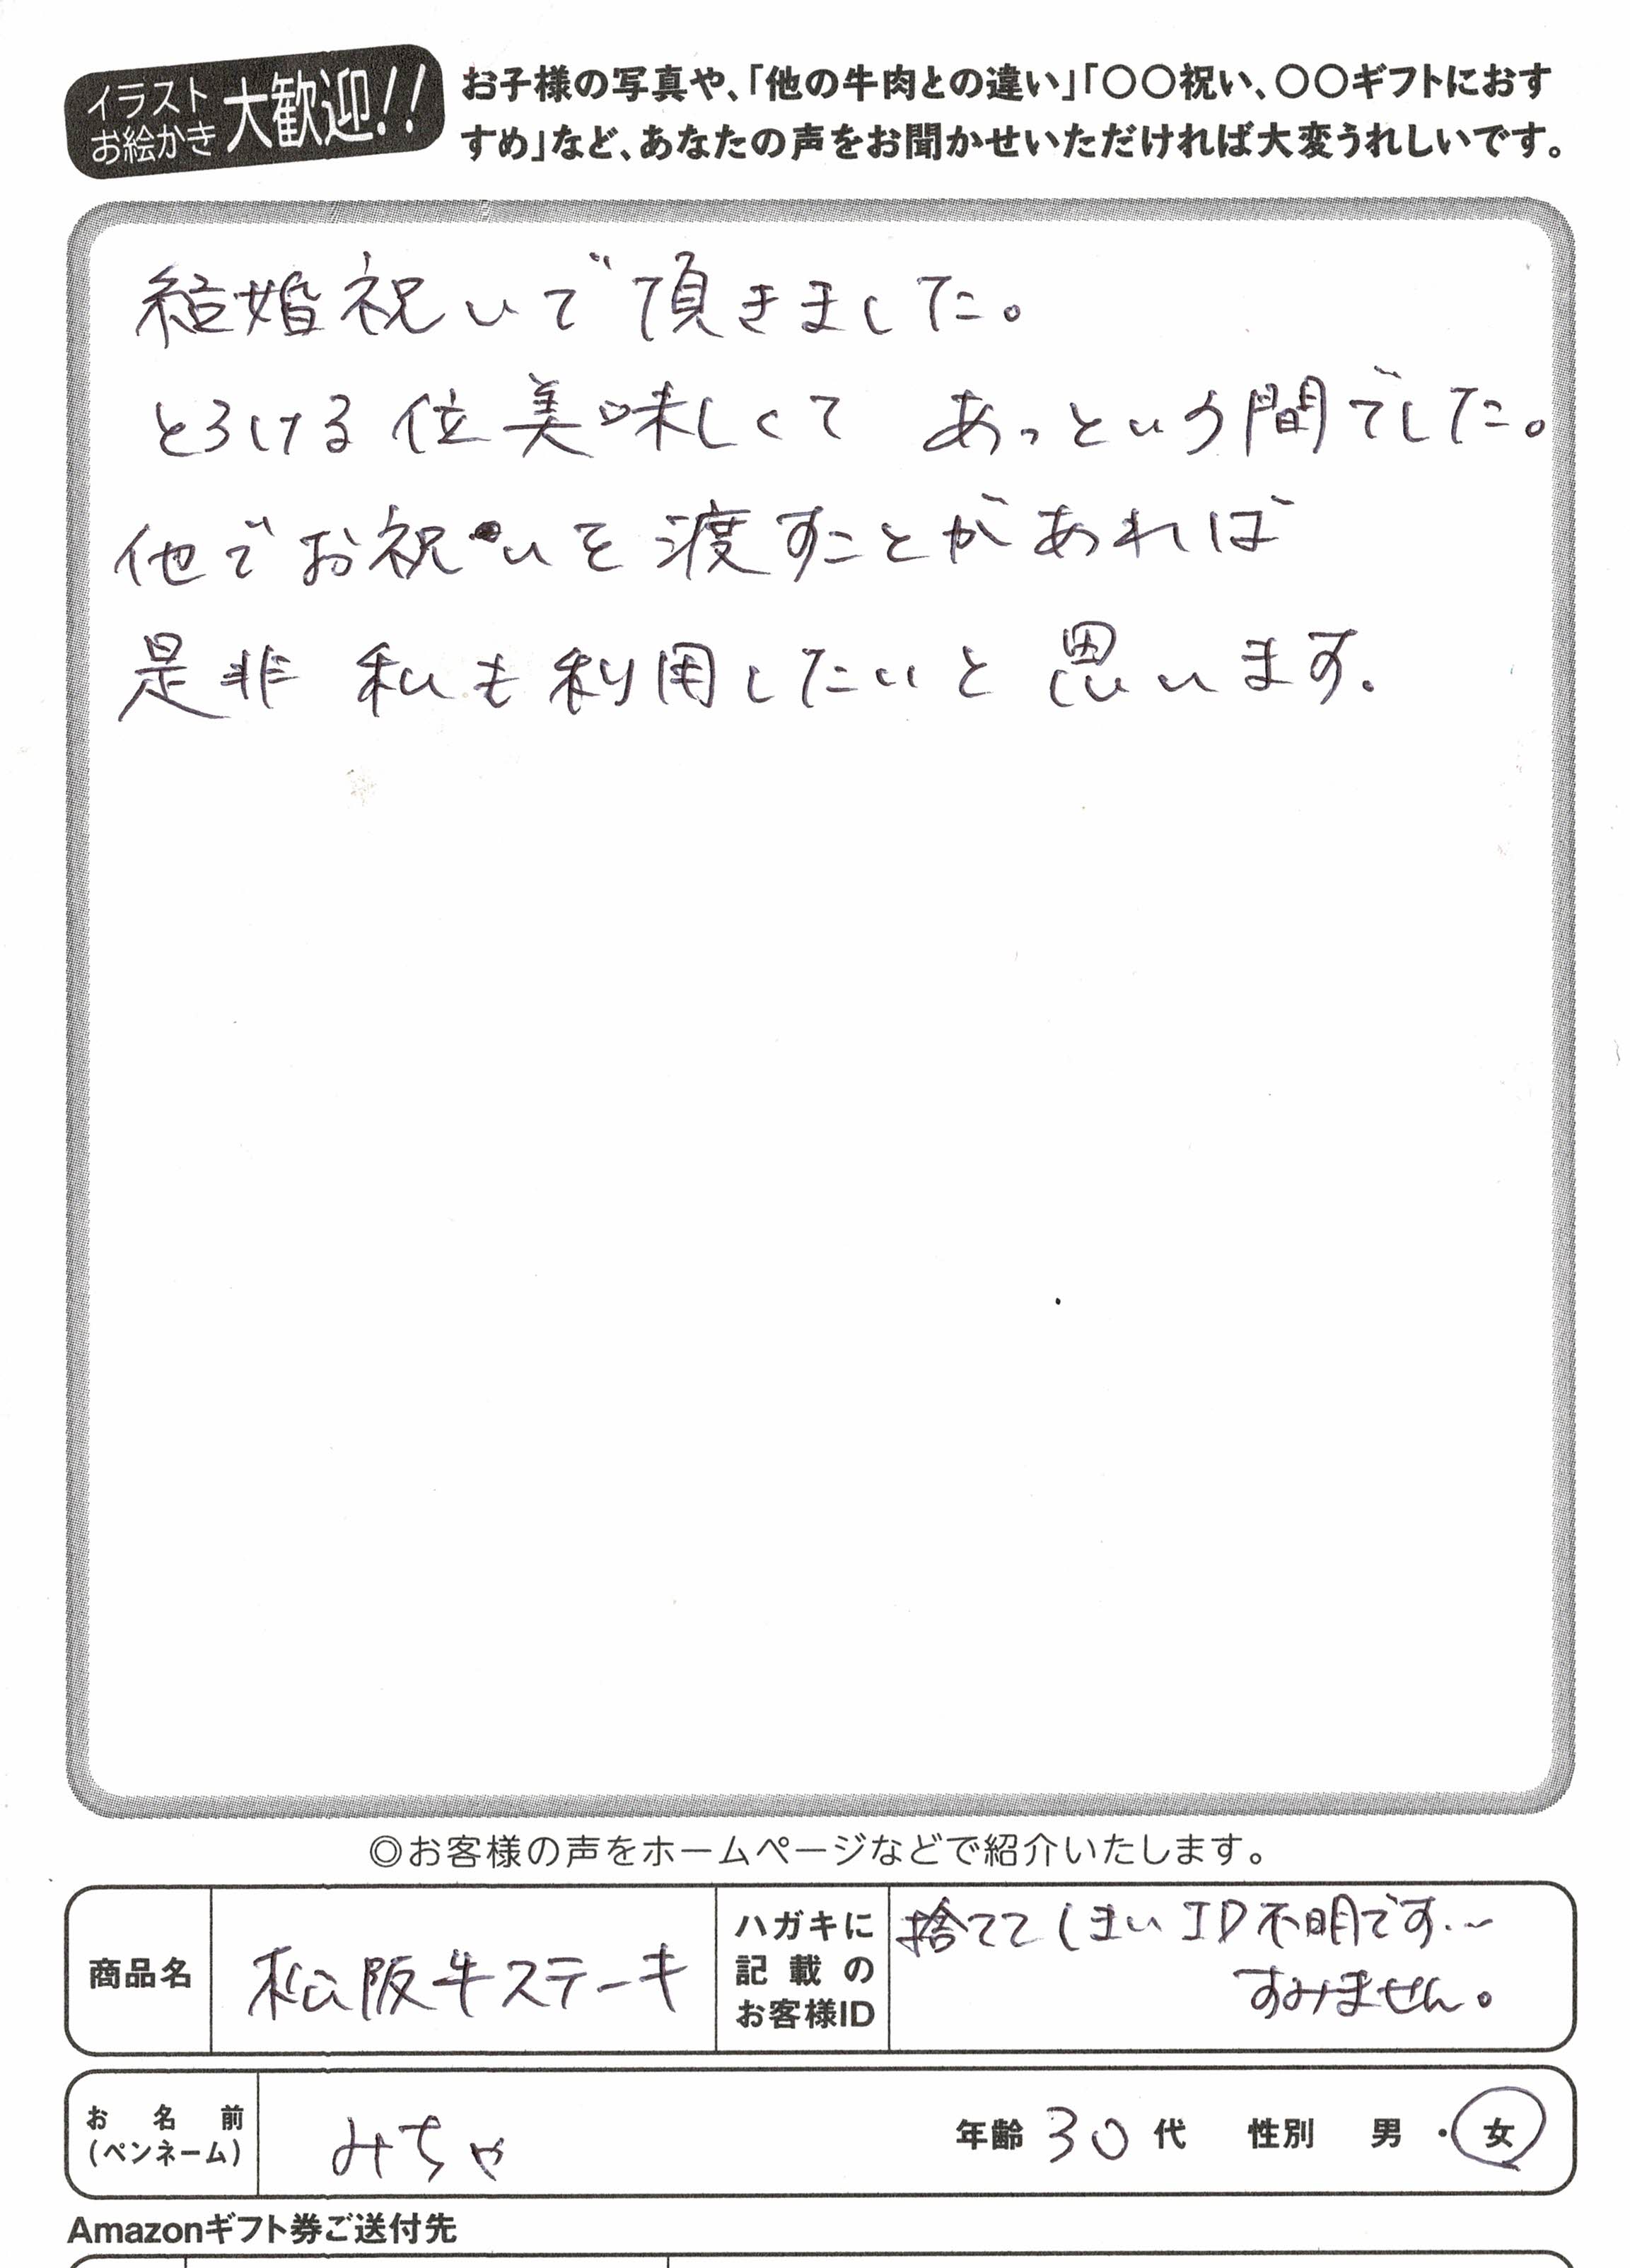 イラスト
お絵かき
大歓迎!!
お子様の写真や、「他の牛肉との違い」「〇〇祝い、〇〇ギフトにおす
すめ」など、あなたの声をお聞かせいただければ大変うれしいです。
結婚祝いで頂きました。
とろける位美味しくて あっという間でした。
他でお祝いを渡すことがあれば
是非 私も利用したいと思います.
◎お客様の声をホームページなどで紹介いたします。
商品名
松阪牛ステーキ
ハガキに
記載の
お客様ID
捨ててしまいID不明です..~
すみません。
お名前
(ペンネーム)
みちゃ
年齢 30 代 性別 男・女
Amazonギフト券ご送付先